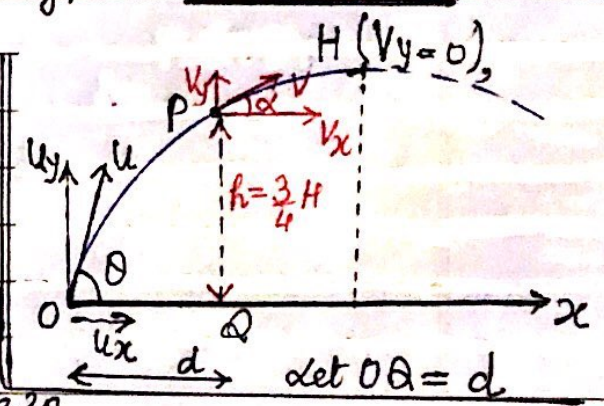 H (Vy = 0),
Vy V
P α
Vx
uy u
h = 3/4 H
θ
O Q x
ux
d Let OQ = d